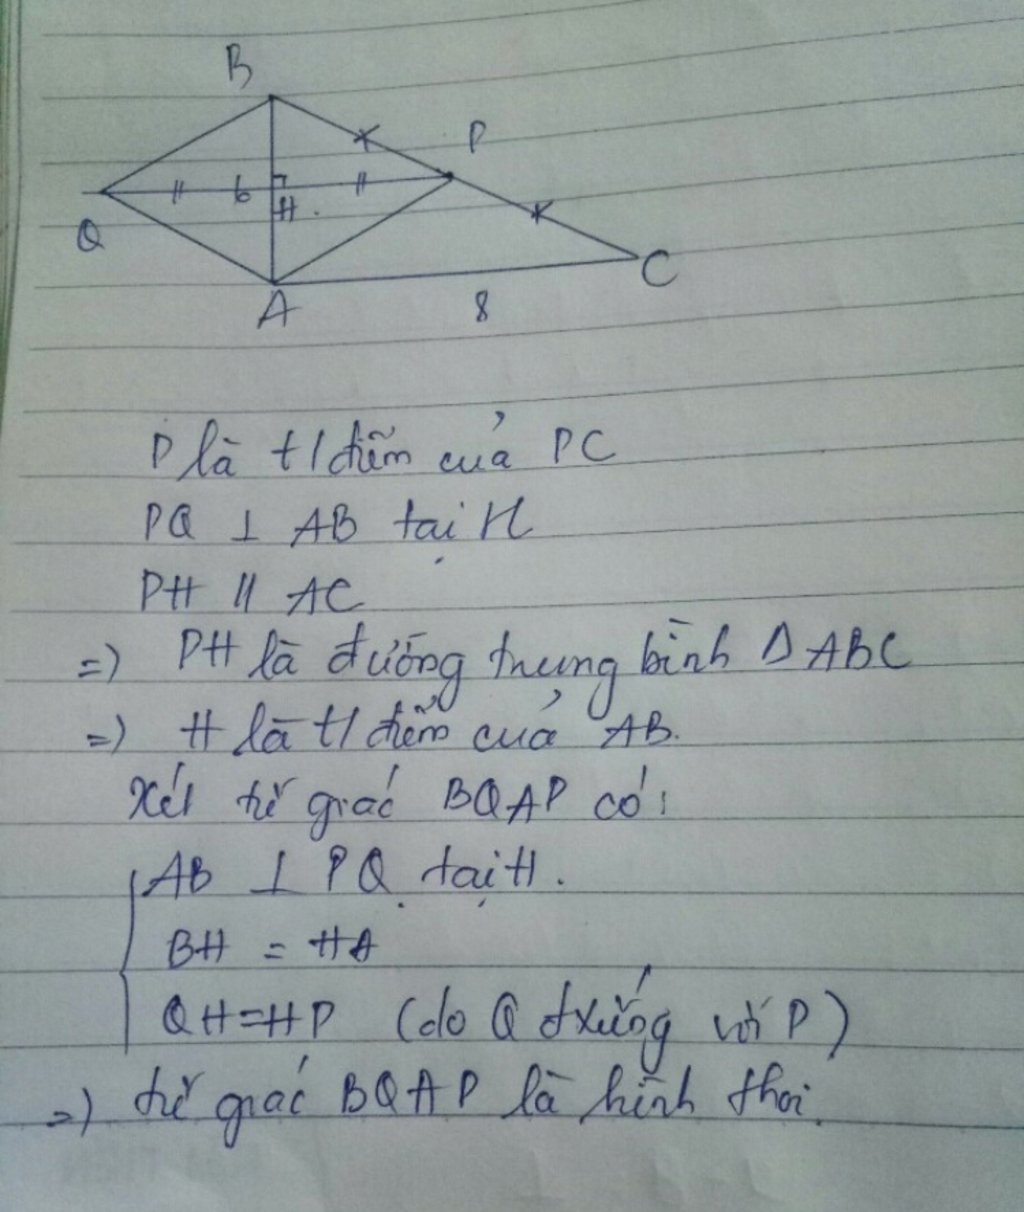 B
P
Q
6
H
A
8
C
P là t/điểm của PC
PQ ⊥ AB tại H
PH // AC
=> PH là đường trung bình Δ ABC
=> H là t/điểm của AB.
Xét tứ giác BQAP có:
AB ⊥ PQ tại H.
BH = HA
QH=HP (do Q đxứng với P)
=> tứ giác BQAP là hình thoi.